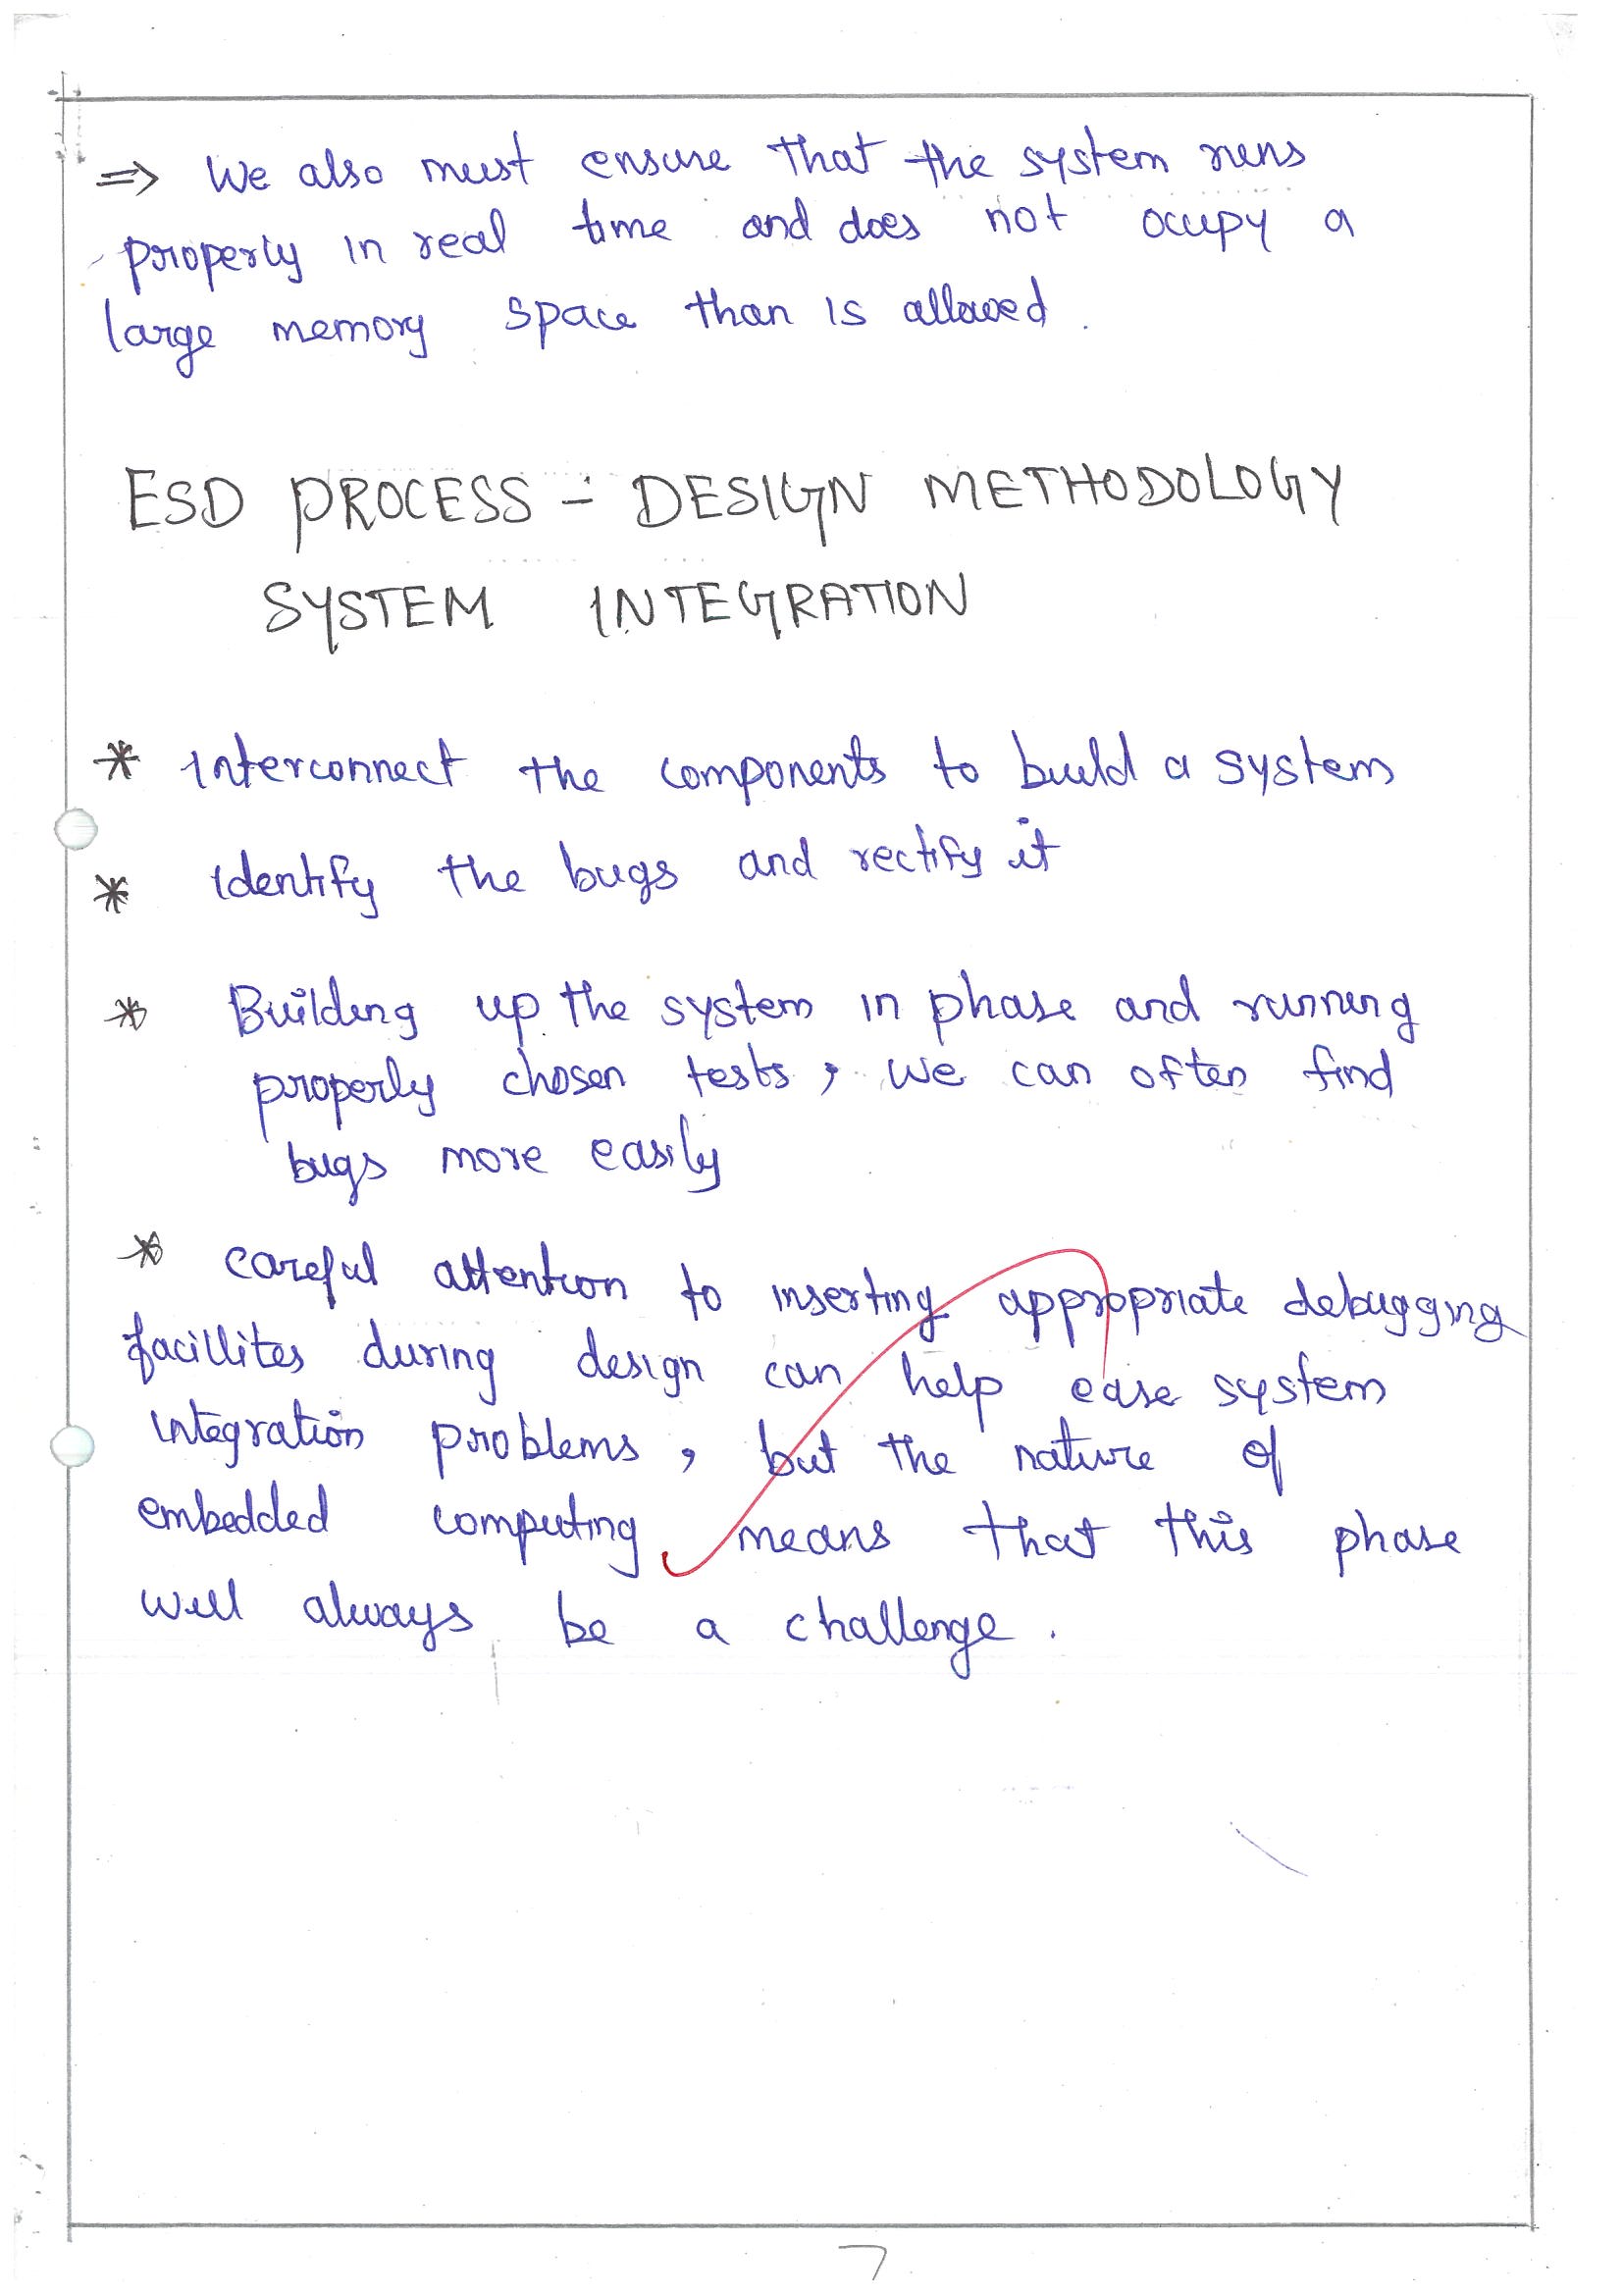 ⇒ We also must ensure that the system runs
properly in real time and does not ocupy a
large memory space than is allowed.
ESD PROCESS - DESIGN METHODOLOGY
SYSTEM INTEGRATION
* Interconnect the components to build a system
* Identify the bugs and rectify it
* Building up the system in phase and running
properly chosen tests, we can often find
bugs more easily
* Careful attention to inserting appropriate debugging
facillites during design can help ease system
integration problems, but the nature of
embedded computing means that this phase
will always be a challenge.
7